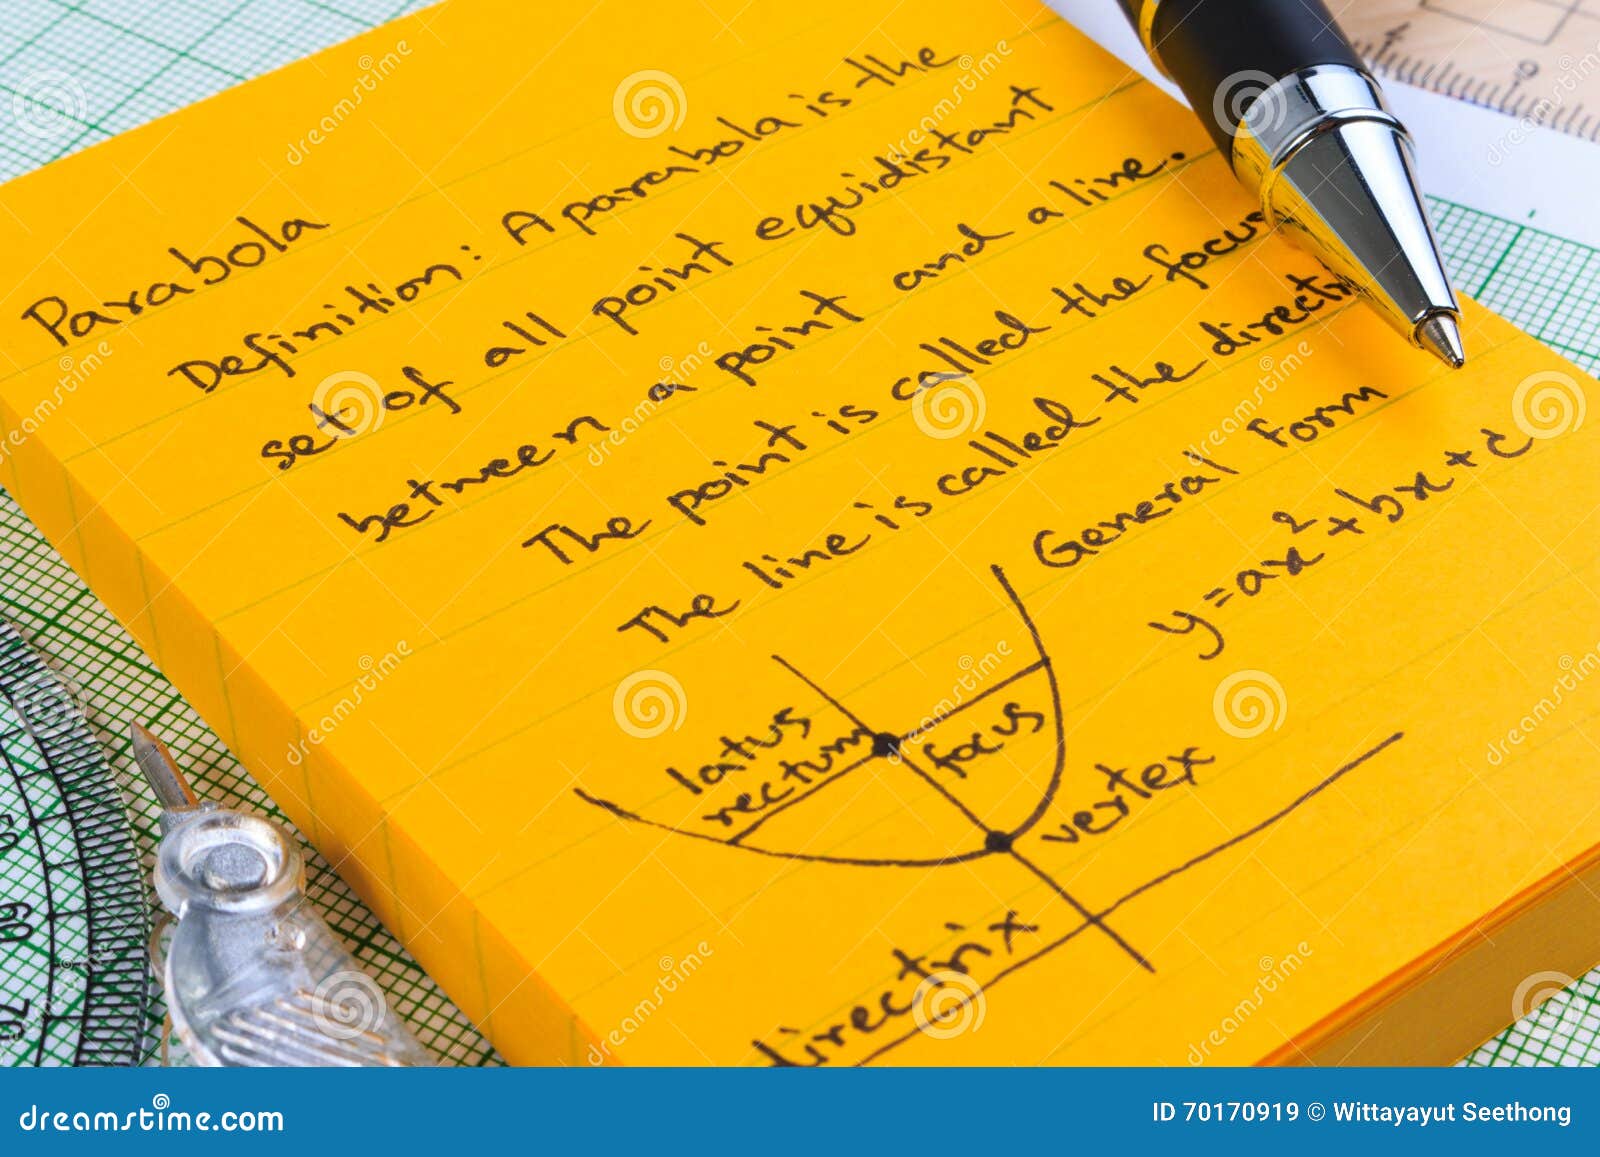 Parabola
Definition: A parabola is the
set of all point equidistant
between a point and a line.
The point is called the focus
The line is called the directri
General Form
y = ax² + bx + c
latus
rectum
focus
vertex
directrix
dreamstime.com
ID 70170919 © Wittayayut Seethong